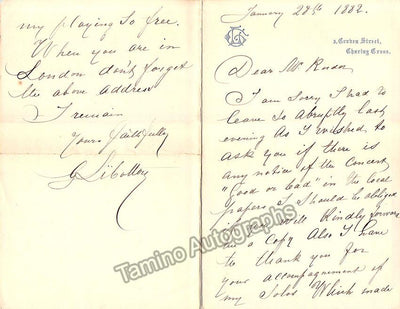 January 28th 1882.
3, Craven Street,
Charing Cross.
Dear Mr
I am sorry I had to
leave so abruptly last
evening as I wished to
ask you if there is
any notice of the concert
"Good or bad" in the local
papers I should be obliged
if you will kindly forward
me a copy Also I have
to thank you for
your accompagnement of
my Solos Which made
my playing so free.
When you are in
London don't forget
the above address
I remain
Yours faithfully
G Libotton
Tamino Autographs